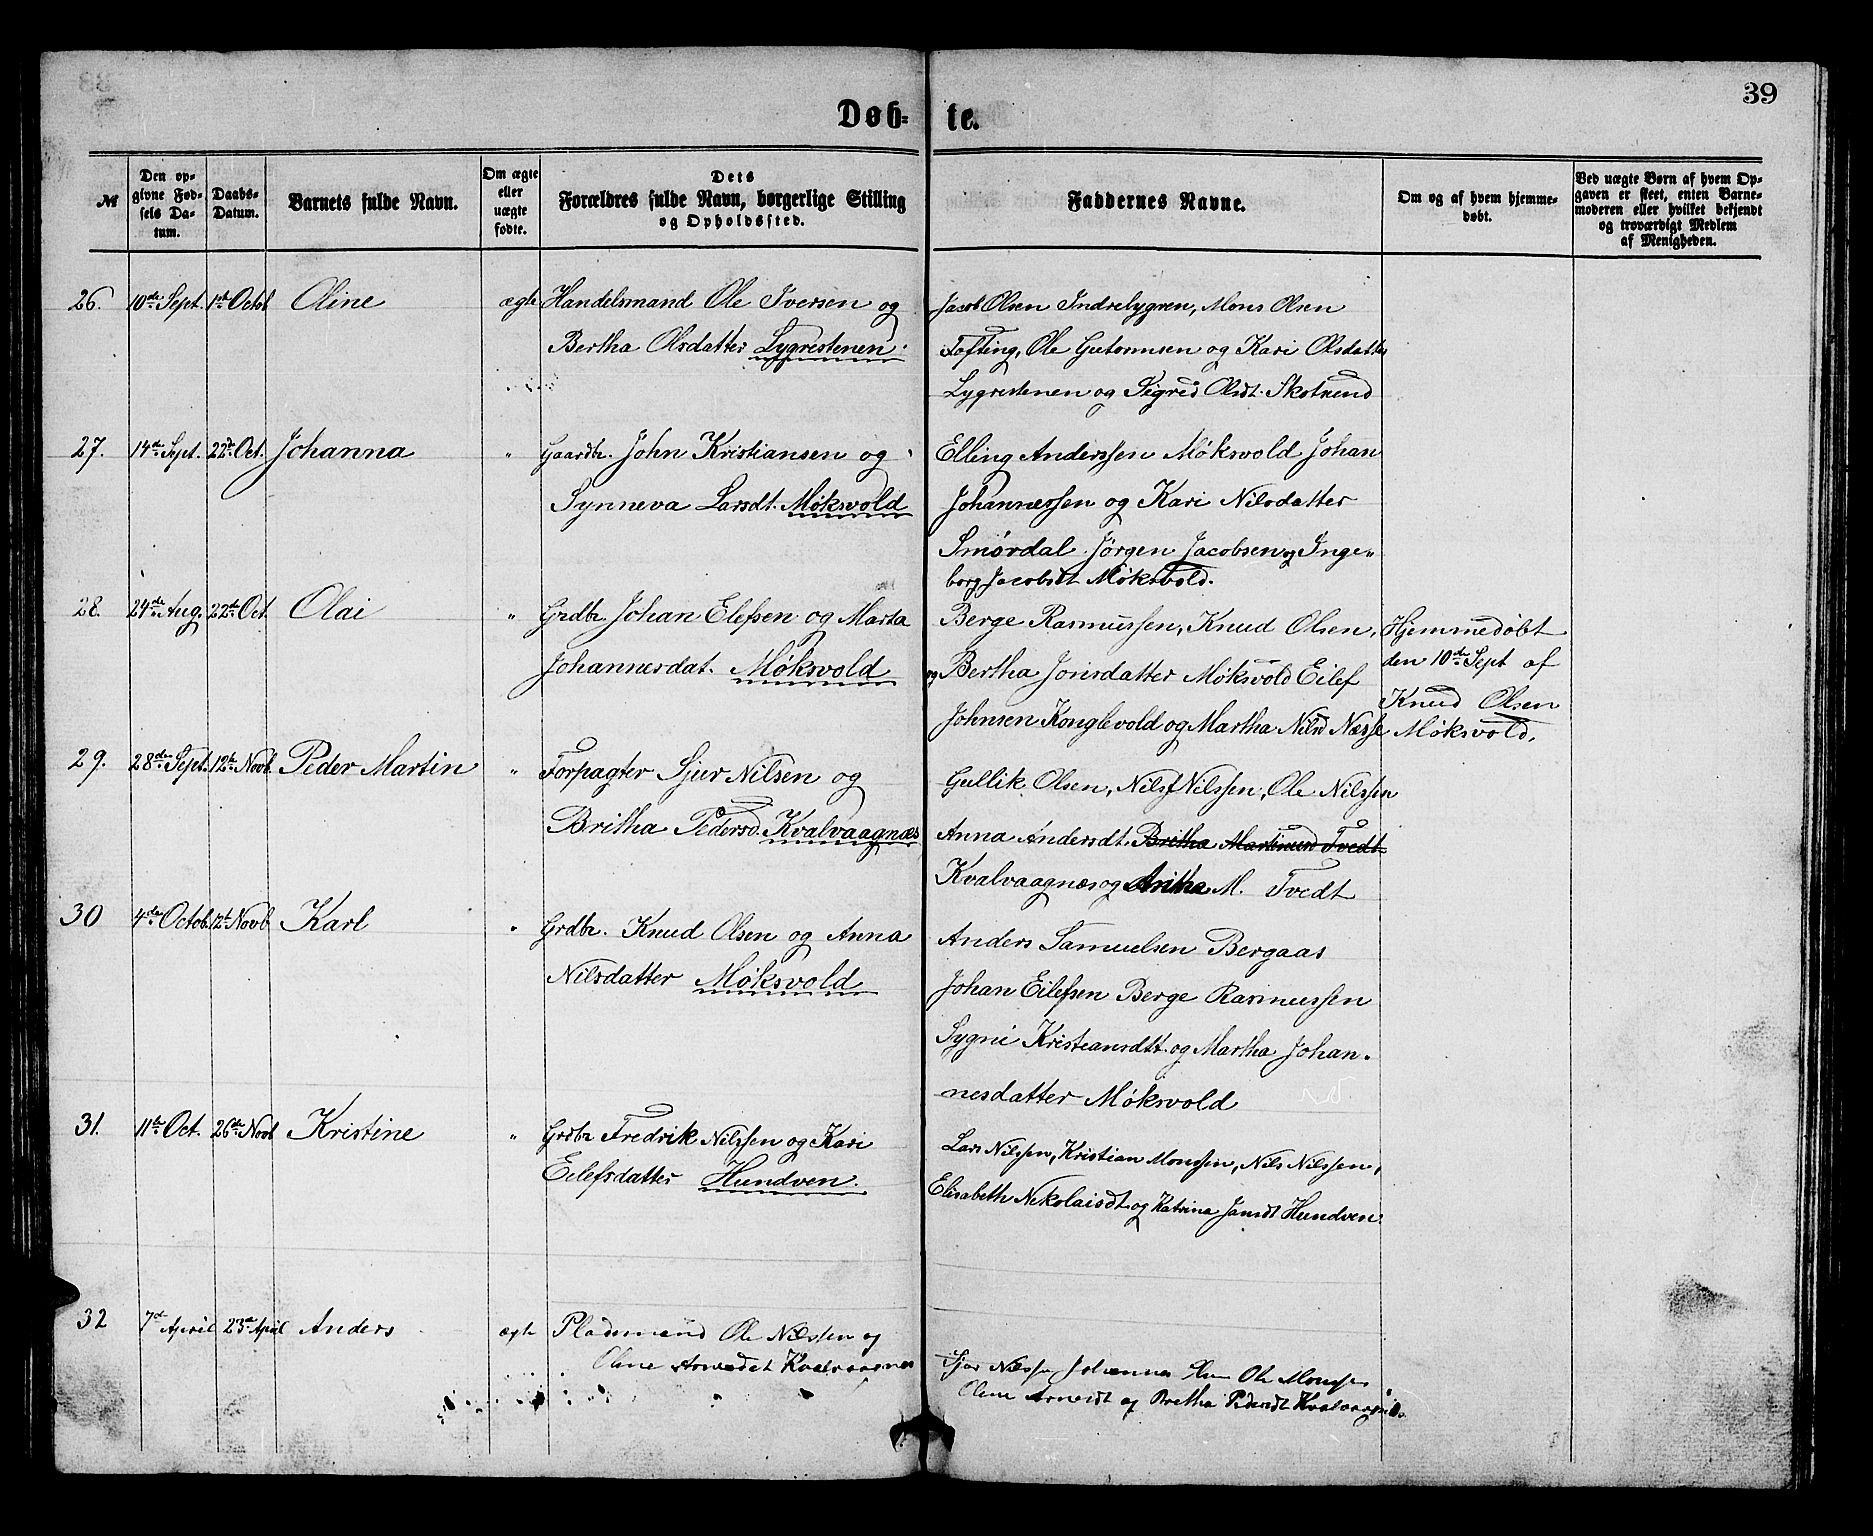 39
Døb-te.
№
Den opgivne Fødsels Datum.
Daabs-Datum.
Barnets fulde Navn.
Om ægte eller uægte fødte.
Dets Forældres fulde Navn, borgerlige Stilling og Opholdssted.
Faddernes Navne.
Om og af hvem hjemmedøbt.
Ved uægte Børn af hvem Opgaven er skeet, enten Barnemoderen eller hvilket bekjendt og troværdigt Medlem af Menigheden.
26. 10de Sept. 1ste Octob Oline ægte Handelsmand Ole Iversen og
Bertha Olsdatter Lygrestenen.
Jacob Olsen Indrelygren, Mons Olsen
Tofting, Ole Guttormsen og Kari Olsdatter
Lygrestenen og Sigrid Olsdt. Skotsund
27. 14de Sept. 22de Oct. Johanna " Gaardbr. John Kristiansen og
Synneva Larsdt. Møksvold
Elling Anderssen Møksvold Johan
Johannessen og Kari Nilsdatter
Smørdal. Jørgen Jacobsen og Inge-
borg Jacobsdt Møksvold.
28. 24de Aug. 22de Oct. Olai " Grdbr Johan Elefsen og Marta
Johannesdat. Møksvold
Berge Rasmussen, Knud Olsen,
og Bertha Jonsdatter Møksvold Eilef
Johnsen Konglevold og Martha Nilsd Næsse
Hjemmedøbt
den 10de Sept af
Knud Olsen
Møksvold.
29. 28de Sept. 12te Novb. Peder Martin " Forpagter Sjur Nilsen og
Britha Pedersd. Kvalvaagnæs
Gullik Olsen, Nils Nilssen, Ole Nilssen
Anna Andersdt. Britha Martinusd Tvedt
Kvalvaagnæs og Britha M. Tvedt
30 4de Octob. 12t Novb Karl " Grdbr. Knud Olsen og Anna
Nilsdatter Møksvold
Anders Samuelsen Bergaas
Johan Eilefsen Berge Rasmussen
Sygni Kristiansdtt. og Martha Johan-
nesdatter Møksvold
31. 11te Oct. 26de Novb Kristine " Grdbr Fredrik Nilssen og Kari
Eilefsdatter Hundven.
Lars Nilssen, Kristian Monssen, Nils Nilssen,
Elisabeth Nikolaisdt og Katrina Jansdt Hundven.
32 7de April 23de April Anders ægte Pladsmand Ole Nilssen og
Oline Arnesdet Kvalvaagnes
Sjur Nilssen Johannes Ole Monssen
Oline Arnesdt og Bretha Pedersdt Kvalvaagnæs